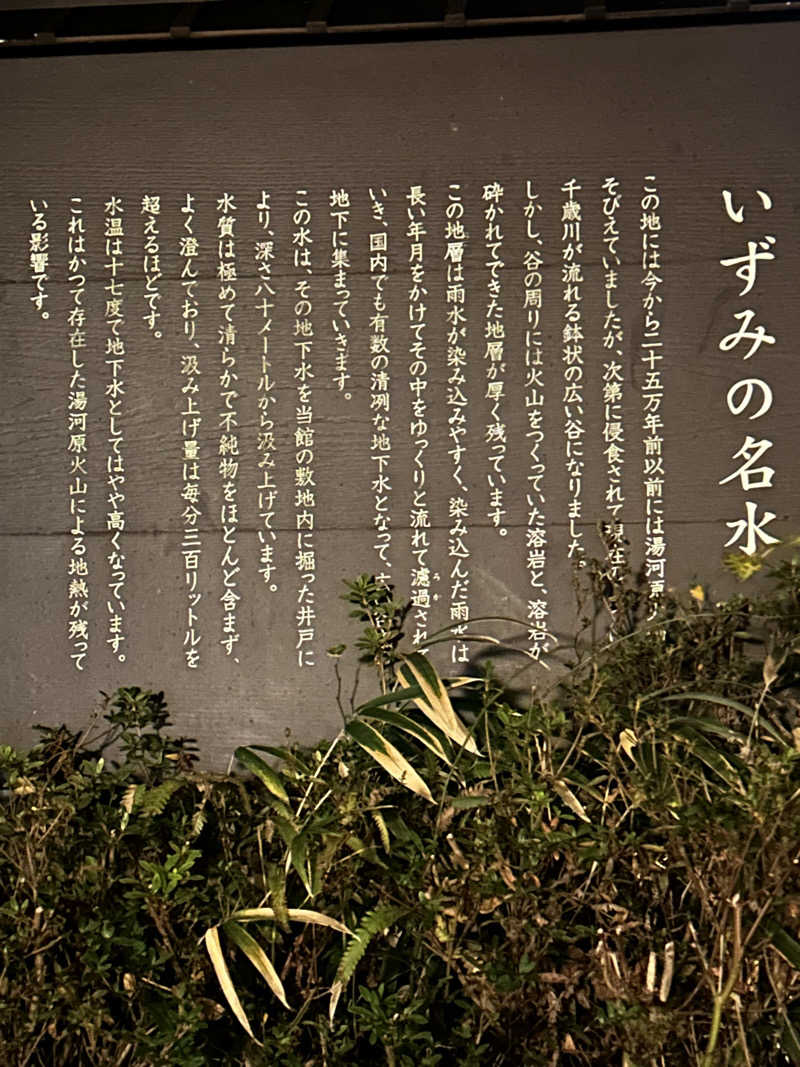 いずみの名水
この地には今から二十五万年前以前には湯河原火
そびえていましたが、次第に侵食されて現在の
千歳川が流れる鉢状の広い谷になりました。
しかし、谷の周りには火山をつくっていた溶岩と、溶岩が
砕かれてできた地層が厚く残っています。
この地層は雨水が染み込みやすく、染み込んだ雨水は
長い年月をかけてその中をゆっくりと流れて濾過され
ろか
いき、国内でも有数の清冽な地下水となって、
地下に集まっていきます。
この水は、その地下水を当館の敷地内に掘った井戸に
より、深さ八十メートルから汲み上げています。
水質は極めて清らかで不純物をほとんど含まず、
よく澄んでおり、汲み上げ量は毎分三百リットルを
超えるほどです。
水温は十七度で地下水としてはやや高くなっています。
これはかつて存在した湯河原火山による地熱が残って
いる影響です。